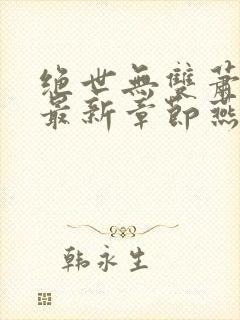 绝世無雙蕭
最新章節燕
韩永生